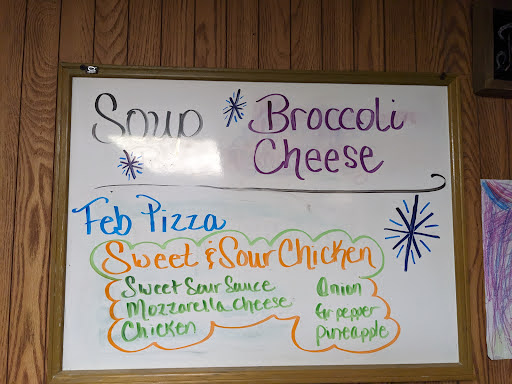 Soup Broccoli
Cheese
Feb Pizza
Sweet & Sour Chicken
Sweet Sour Sauce Onion
Mozzarella Cheese Gr pepper
Chicken Pineapple